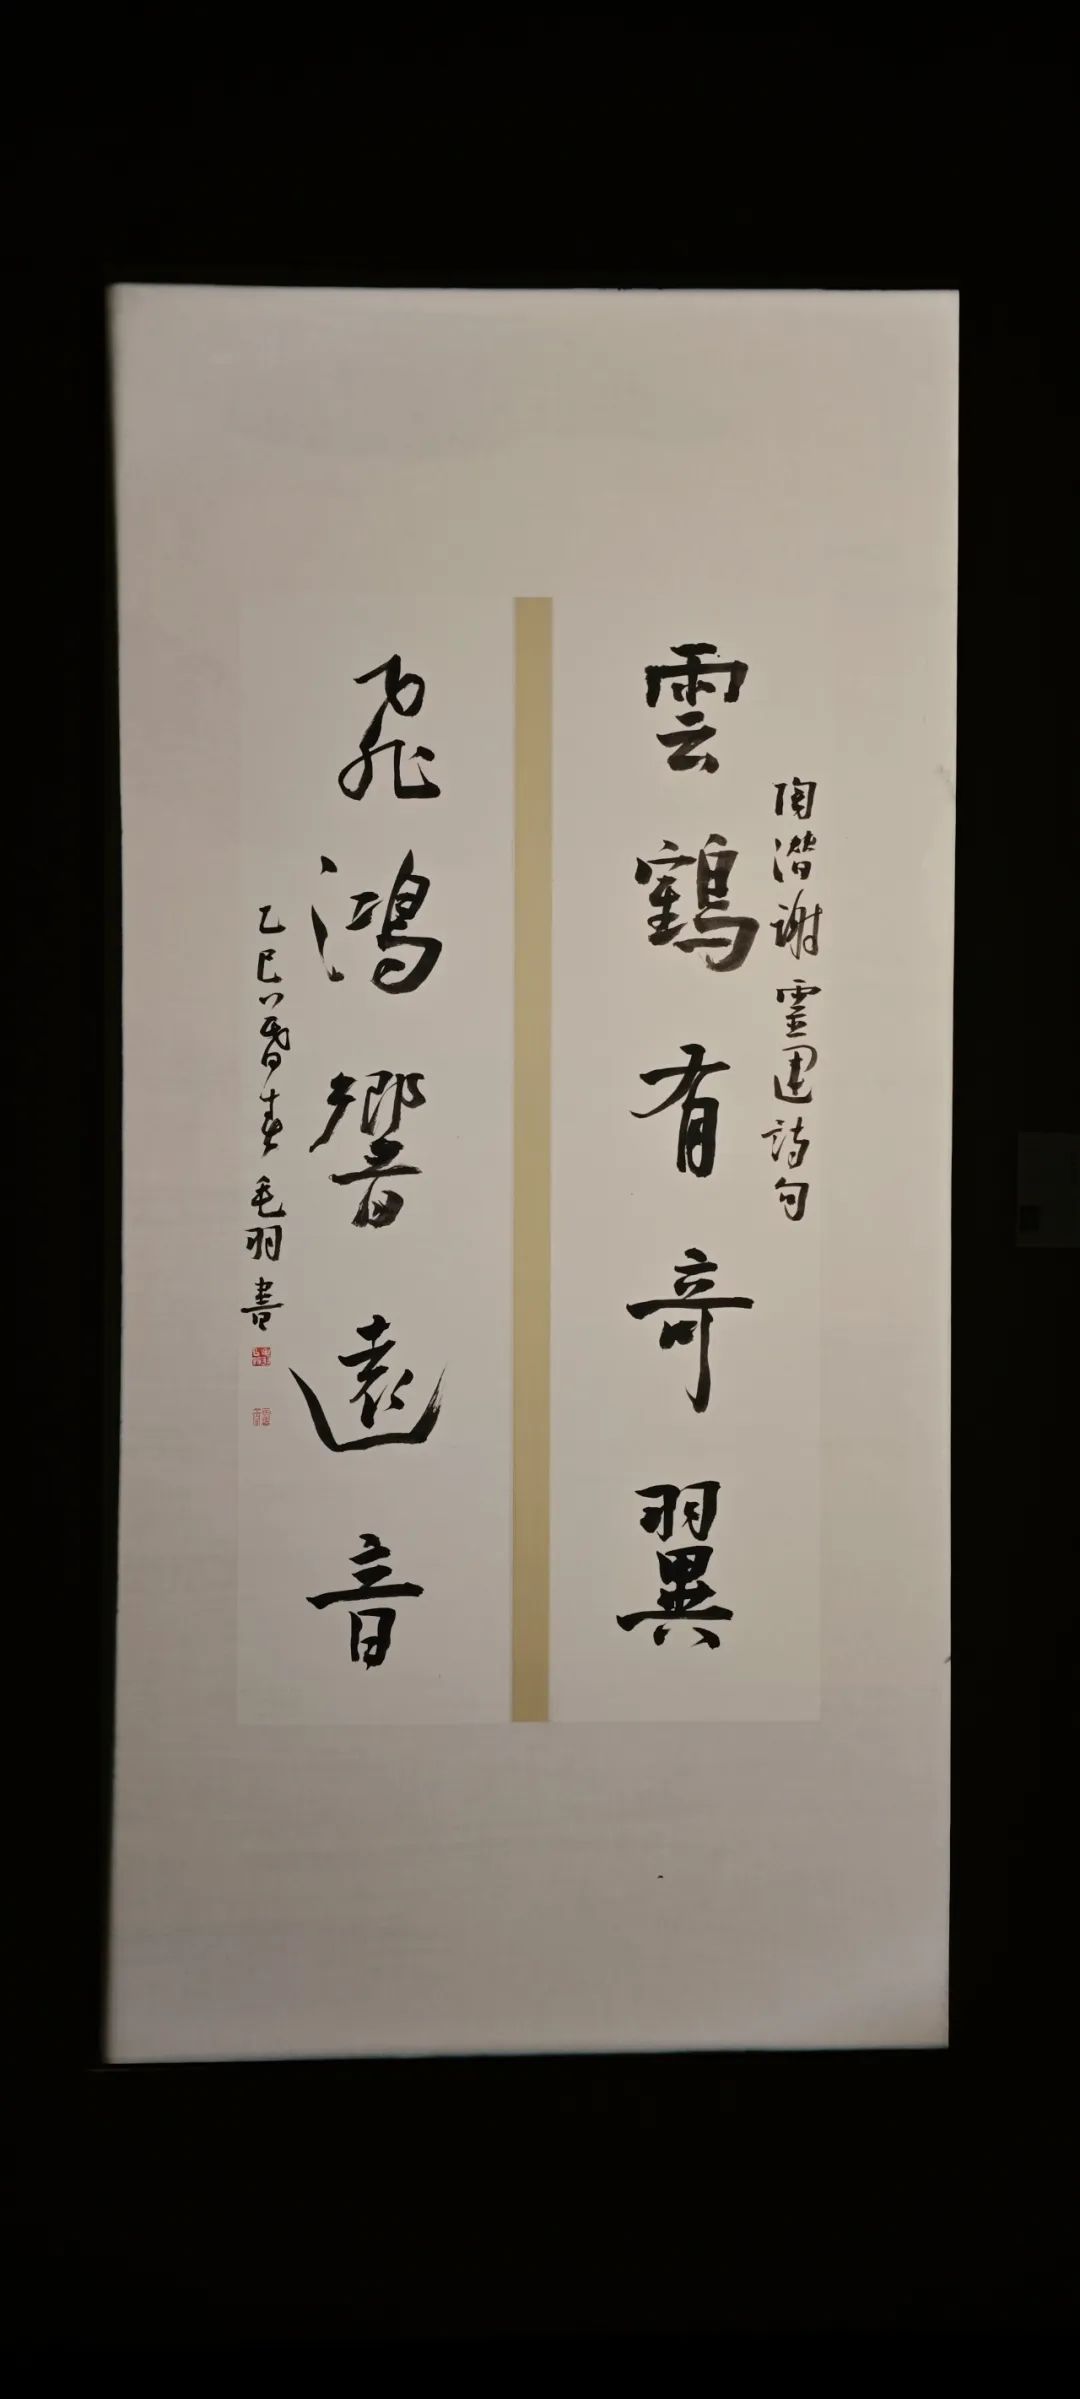 雲鶴有奇翼
陶潛謝靈運詩句
飛鴻響遠音
乙巳八暮春毛羽書